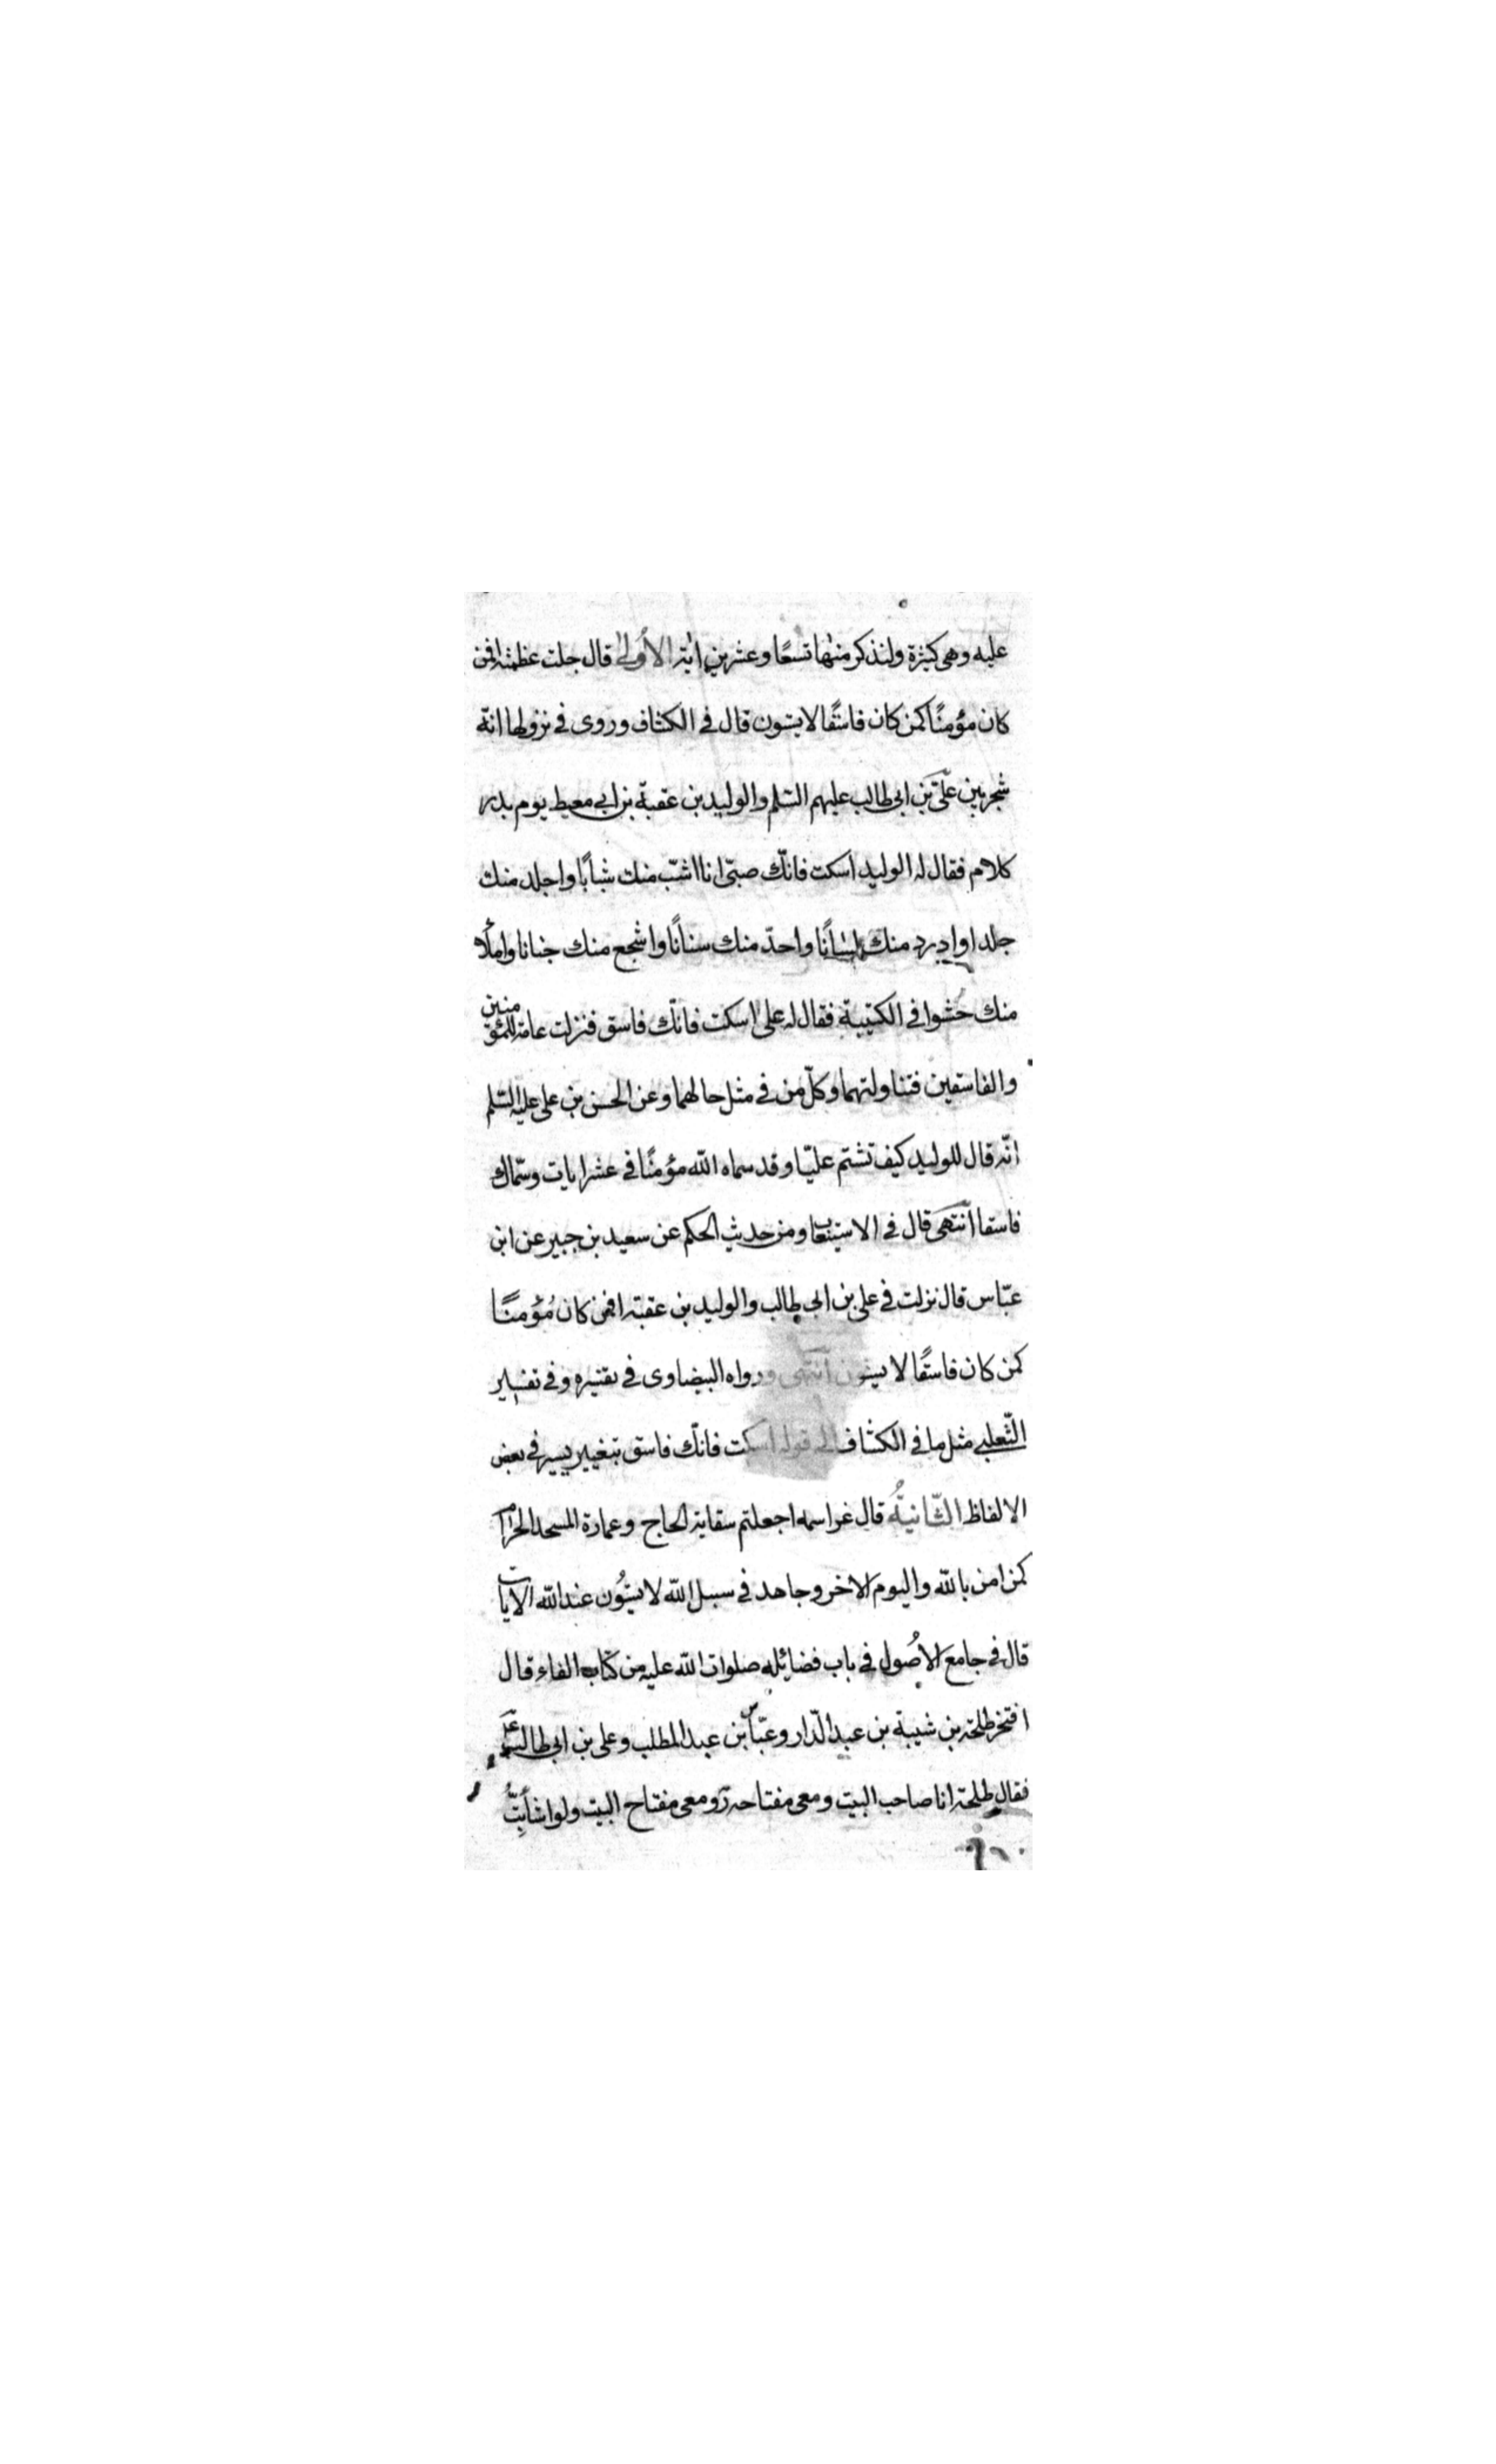 عليه وهى كثيرة ولنذكر منها تسعًا وعشرين اية الأولى قال جلت عظمته افمن
كان مؤمنًا كمن كان فاسقًا لا يستون قال فى الكشاف وروى فى نزولها انّه
شجر بين علىّ بن ابى طالب عليهم السّلم والوليد بن عقبة بن ابى معيط يوم بدر
كلام فقال له الوليد اسكت فانّك صبىّ انا اشبّ منك شبابًا واجلد منك
جلدا و منك لسانًا واحدّ منك سنانًا واشجع منك جنانا واملأ
منك حُشوا فى الكتيبة فقال له على اسكت فانّك فاسق فنزلت عامة للمؤمنين
والفاسقين فتناولتهما وكلّ من فى مثل حالهما وعن الحسن بن على عليه السّلم
انّه قال للوليد كيف تشتم عليّا وقد سماه الله مؤمنًا فى عشر ايات وسمّاك
فاسقا انتهى قال فى الاستيعاب ومن حديث الحكم عن سعيد بن جبير عن ابن
عبّاس قال نزلت فى على بن ابى طالب والوليد بن عقبة افمن كان مُؤمنًا
كمن كان فاسقًا لا يستون انتهى ورواه البيضاوى فى تفسيره وفى تفسير
الثّعلبى مثل ما فى الكشّاف الى قوله اسكت فانّك فاسق بتغيير يسير فى بعض
الالفاظ الثّانيةُ قال عز اسمه اجعلتم سقاية الحاج وعمارة المسجد الحرام
كمن امن بالله واليوم الاخر وجاهد فى سبيل الله لا يستوُن عند الله الايات
قال فى جامع الاصُول فى باب فضائله صلوات الله عليه من كتاب الفاء قال
افتخر طلحة بن شيبة بن عبد الدّار وعبّاس بن عبد المطلب وعلى بن ابى طالب
فقال طلحة انا صاحب البيت ومعى مفتاحه ومعى مفتاح البيت ولو اشأ بتُّ